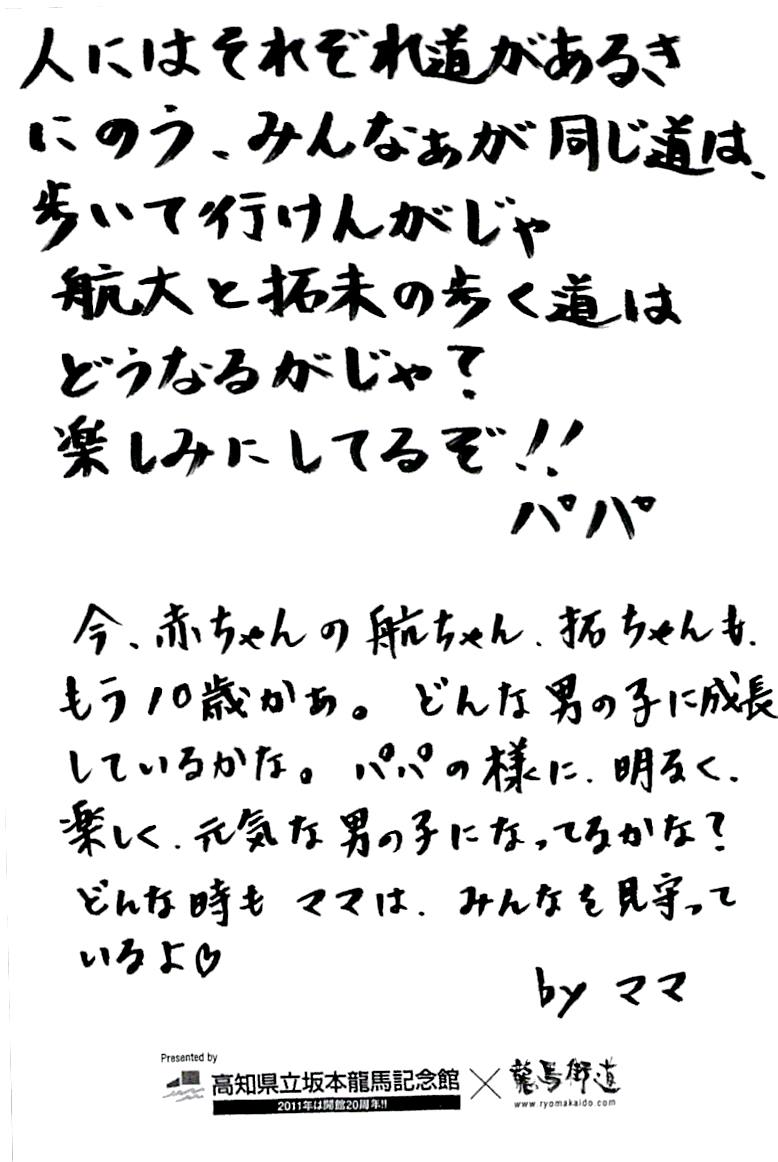 人にはそれぞれ道があるき
にのう、みんなぁが同じ道は、
歩いて行けんがじゃ
航大と拓未の歩く道は
どうなるがじゃ?
楽しみにしてるぞ!!
パパ
今、赤ちゃんの航ちゃん、拓ちゃんも、
もう10歳かぁ。どんな男の子に成長
しているかな。パパの様に、明るく、
楽しく、元気な男の子になってるかな?
どんな時もママは、みんなを見守って
いるよ♡
by ママ
Presented by
高知県立坂本龍馬記念館 × 龍馬街道
2011年は開館20周年!!
www.ryomakaido.com